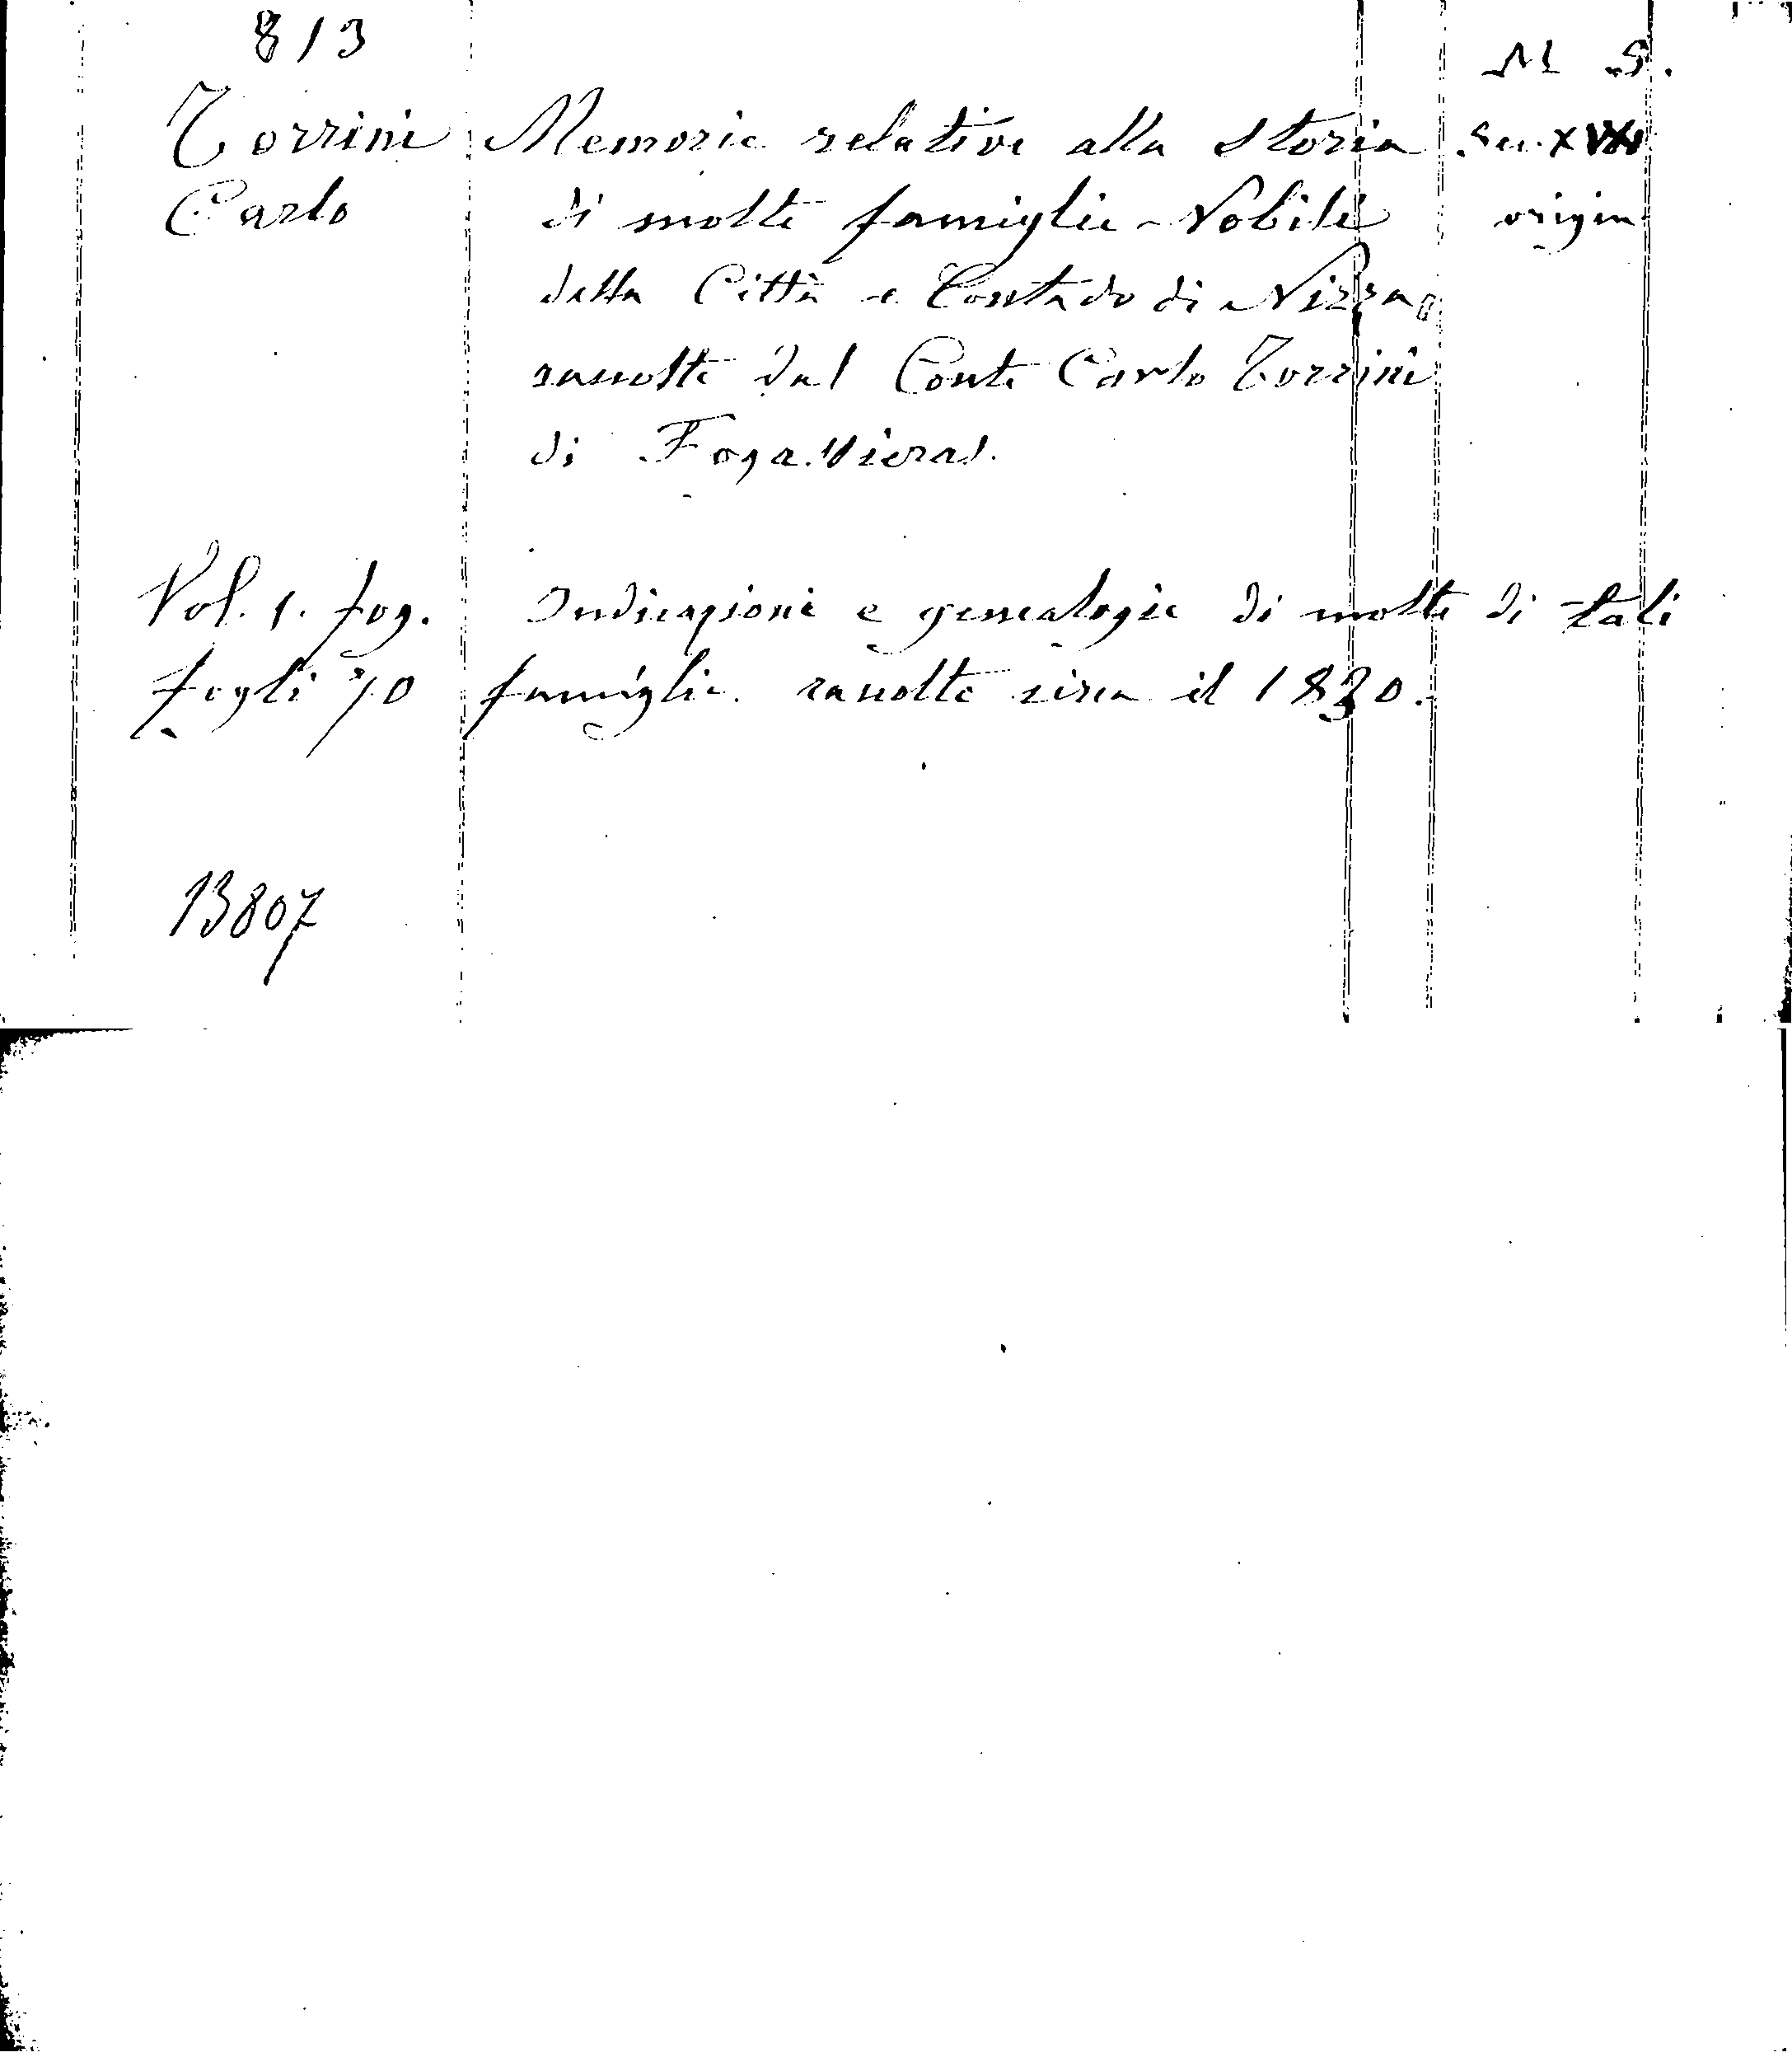 813
M S.
Torrini Memorie relative alla Storia Sec. X
Carlo di molte famiglie Nobili origin
della Città e Contado di Nizza
raccolte dal Conte Carlo Torrini
di Fogassieras.
Vol. 1. fog. Indicazioni e genealogie di molte di tali
fogli 70 famiglie. raccolte circa il 1830.
13807